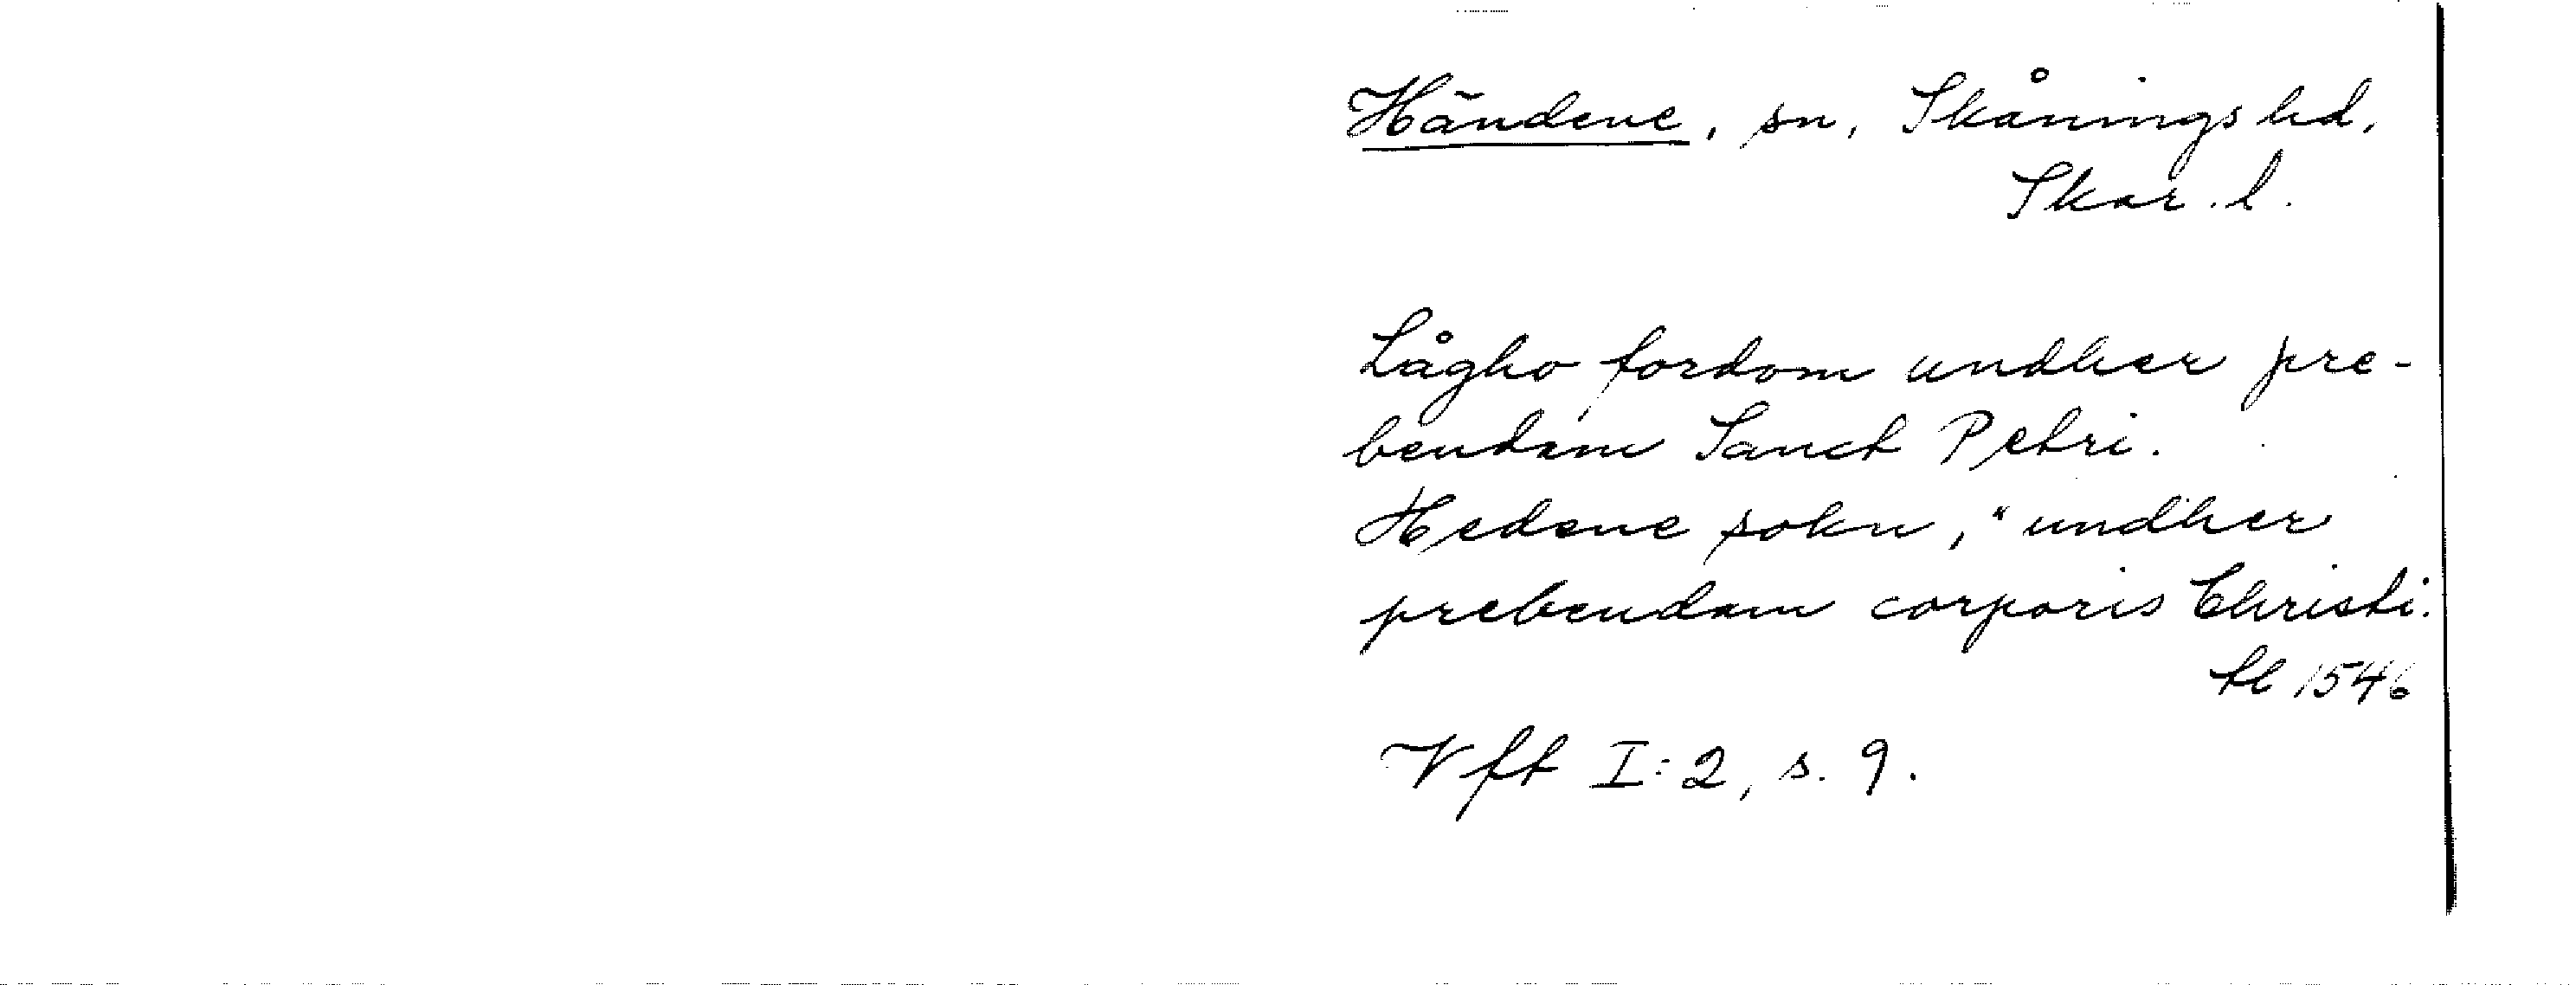 Händene, sn, Skånings hd,
Skar. l.
Lågho fordom undher pre-
bendam Sanct Petri.
Hedene sokn, "undher
prebendam corporis Christi.
tl 1546
Vft I:2, s. 9.